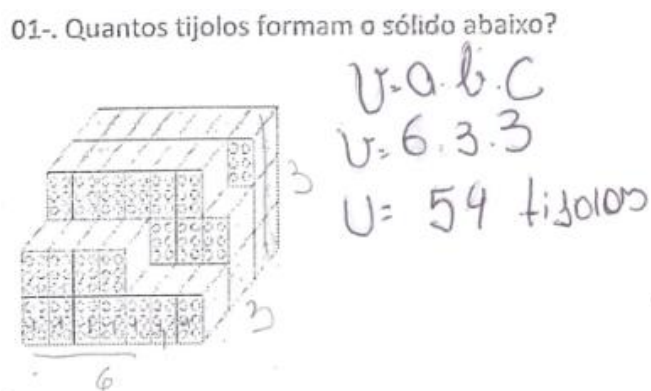 01-. Quantos tijolos formam o sólido abaixo?
V=a.b.c
V=6.3.3
V= 54 tijolos
3
3
6